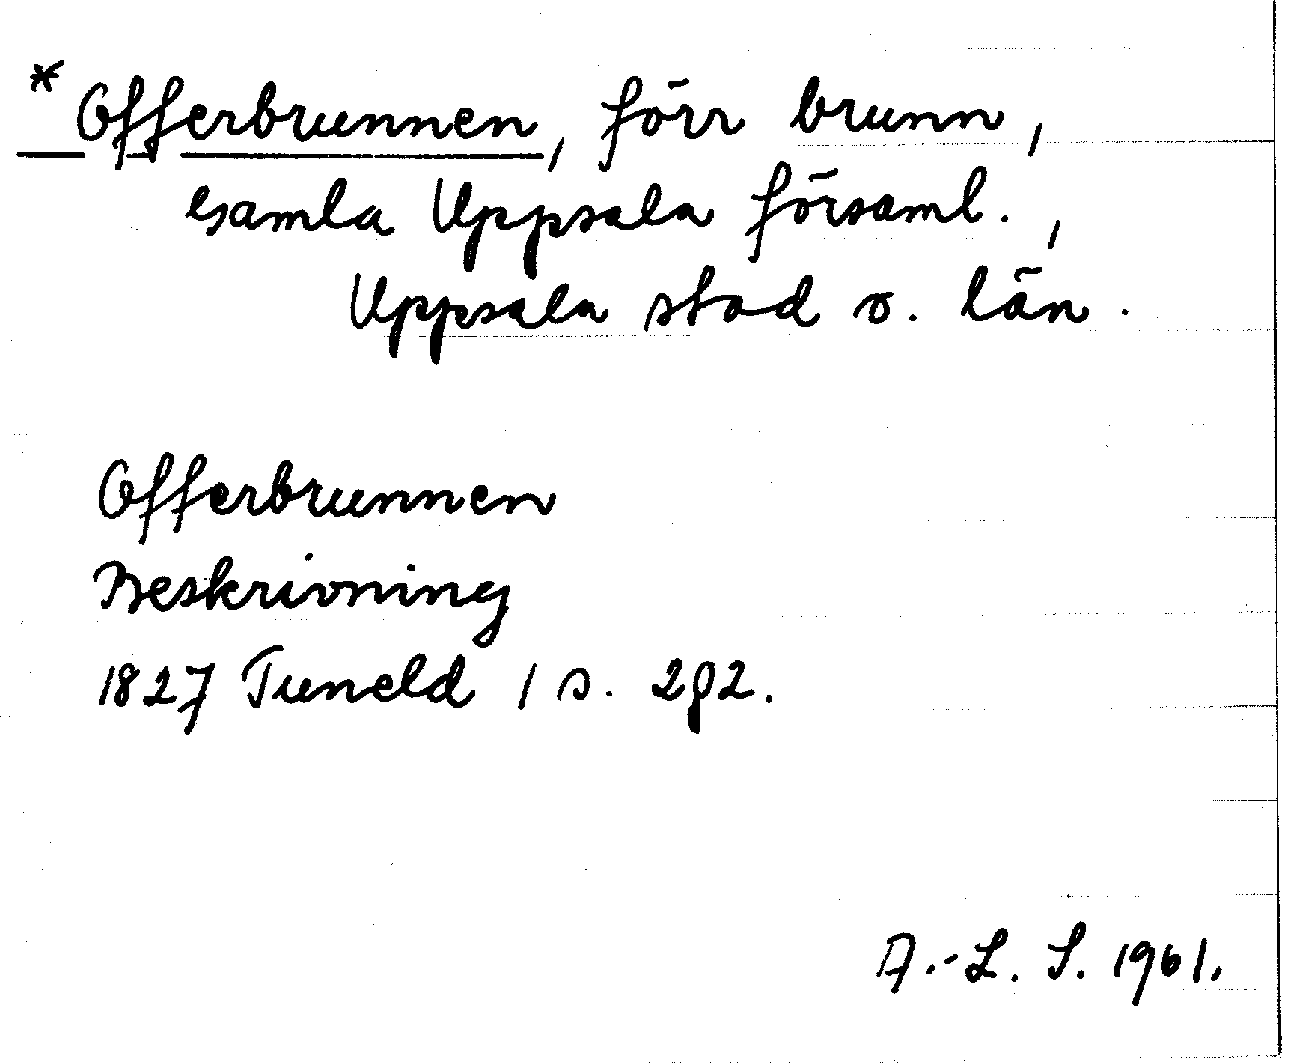 * Offerbrunnen, förr brunn,
Gamla Uppsala församl.,
Uppsala stad o. län.
Offerbrunnen
Beskrivning
1827 Tuneld 1 s. 292.
A.-L. S. 1961.